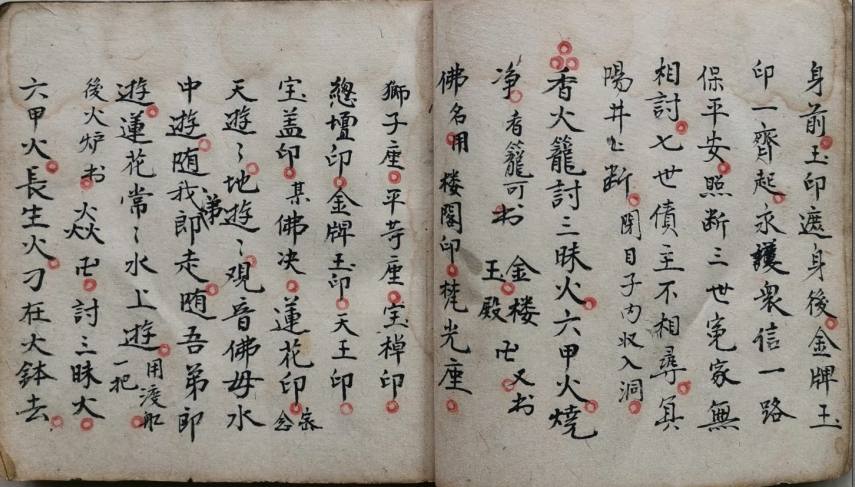 身前玉印遮身後金牌玉
印一齊起永護衆信一路
保平安照断三世寃家無
相討七世債主不相尋真
陽井上断閉目子内収入洞
香火籠討三昧火六甲火燒
净者籠可书金楼玉殿卍又书
佛名用楼閣印梵光座
獅子座平等座宝棹印
總壇印金牌玉印天王印
宝盖印某佛决蓮花印
天遊〻地遊〻观音佛母水
中遊随我郎走随吾弟郎
遊蓮花常〻水上遊用渡船一把
後火炉书火焱卍討三昧火
六甲火長生火刀在火鉢去